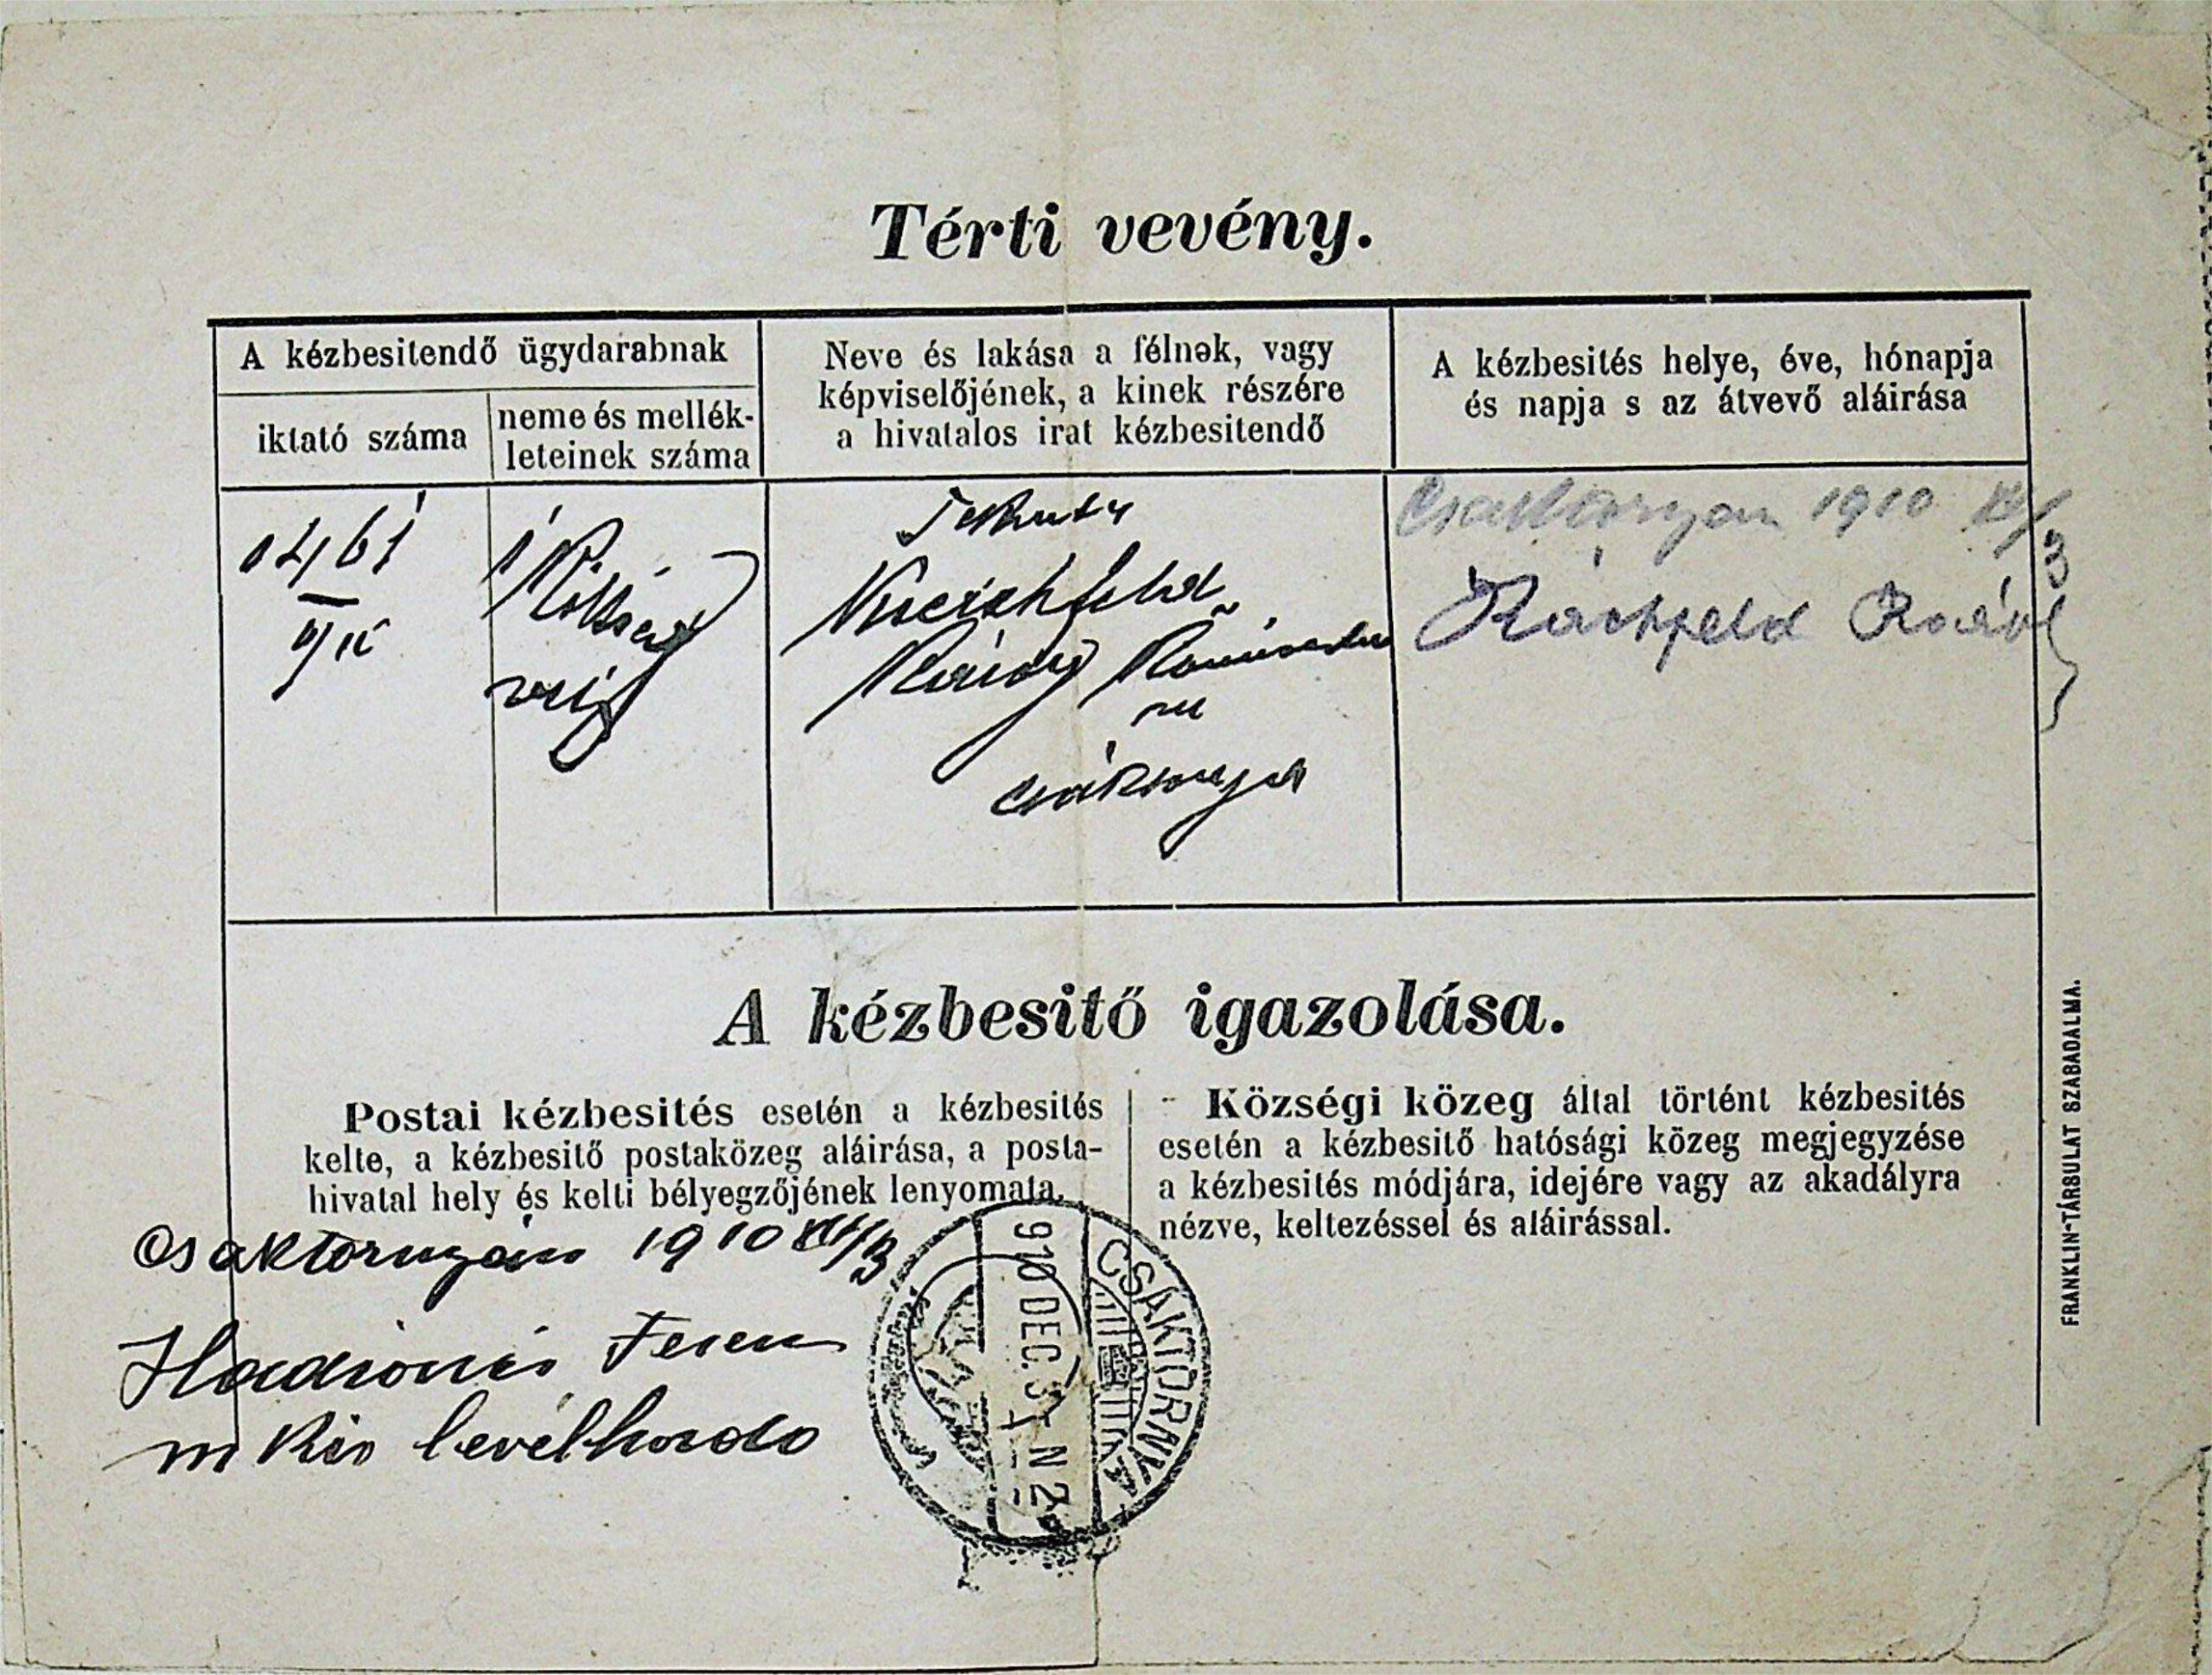 Térti vevény.
A kézbesitendő ügydarabnak
iktató száma
neme és mellék-
leteinek száma
Neve és lakása a félnek, vagy
képviselőjének, a kinek részére
a hivatalos irat kézbesitendő
A kézbesités helye, éve, hónapja
és napja s az átvevő aláirása
Csaktornyan 1910 XII/3
A kézbesitő igazolása.
Postai kézbesités esetén a kézbesités
kelte, a kézbesitő postaközeg aláirása, a posta-
hivatal hely és kelti bélyegzőjének lenyomata.
Csaktornyán 1910 XII/3
Ferenc
m kir levélhordo
Községi közeg által történt kézbesités
esetén a kézbesitő hatósági közeg megjegyzése
a kézbesités módjára, idejére vagy az akadályra
nézve, keltezéssel és aláirással.
CSÁKTORNYA
910 DEC. 3 N 2
FRANKLIN-TÁRSULAT SZABADALMA.